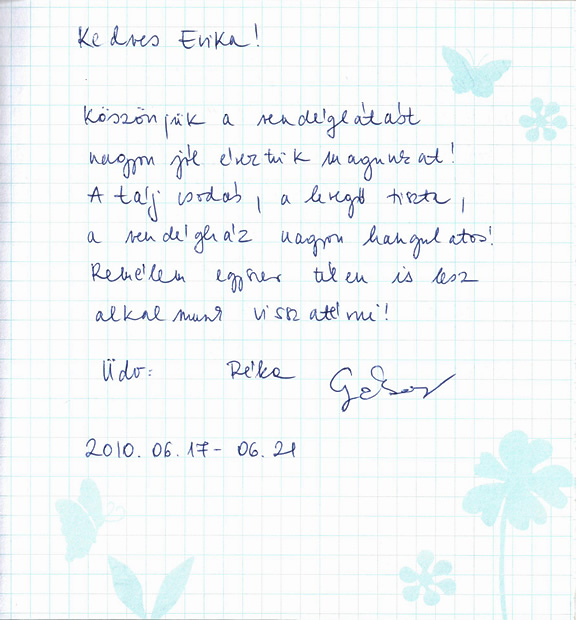 Kedves Erika!
Köszönjük a vendéglátást
nagyon jól éreztük magunkat!
A táj csodás, a levegő tiszta,
a vendégház nagyon hangulatos!
Remélem egyszer télen is lesz
alkalmunk visszatérni!
Üdv: Réka
2010. 06. 17 - 06. 21